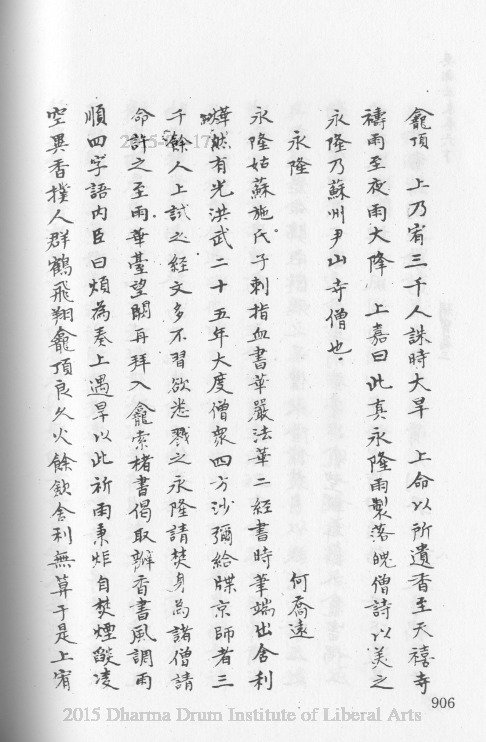 龕頂　上乃宥三千人誅時大旱　上命以所遺香至天禧寺
禱雨至夜雨大降　上嘉曰此真永隆雨製落魄僧詩以美之
永隆乃蘇州尹山寺僧也
永隆　何喬遠
永隆姑蘇施氏子刺指血書華嚴法華二經書時筆端出舍利
燁然有光洪武二十五年大度僧眾四方沙彌給牒京師者三
千餘人上試之經文多不習欲悉戮之永隆請焚身為諸僧請
命許之至雨華臺望闕再拜入龕索楮書偈取瓣香書風調雨
順四字語內臣曰煩為奏上遇旱以此祈雨秉炬自焚煙燄凌
空異香撲人群鶴飛翔龕頂良久火餘斂舍利無算于是上宥
906
2015 Dharma Drum Institute of Liberal Arts